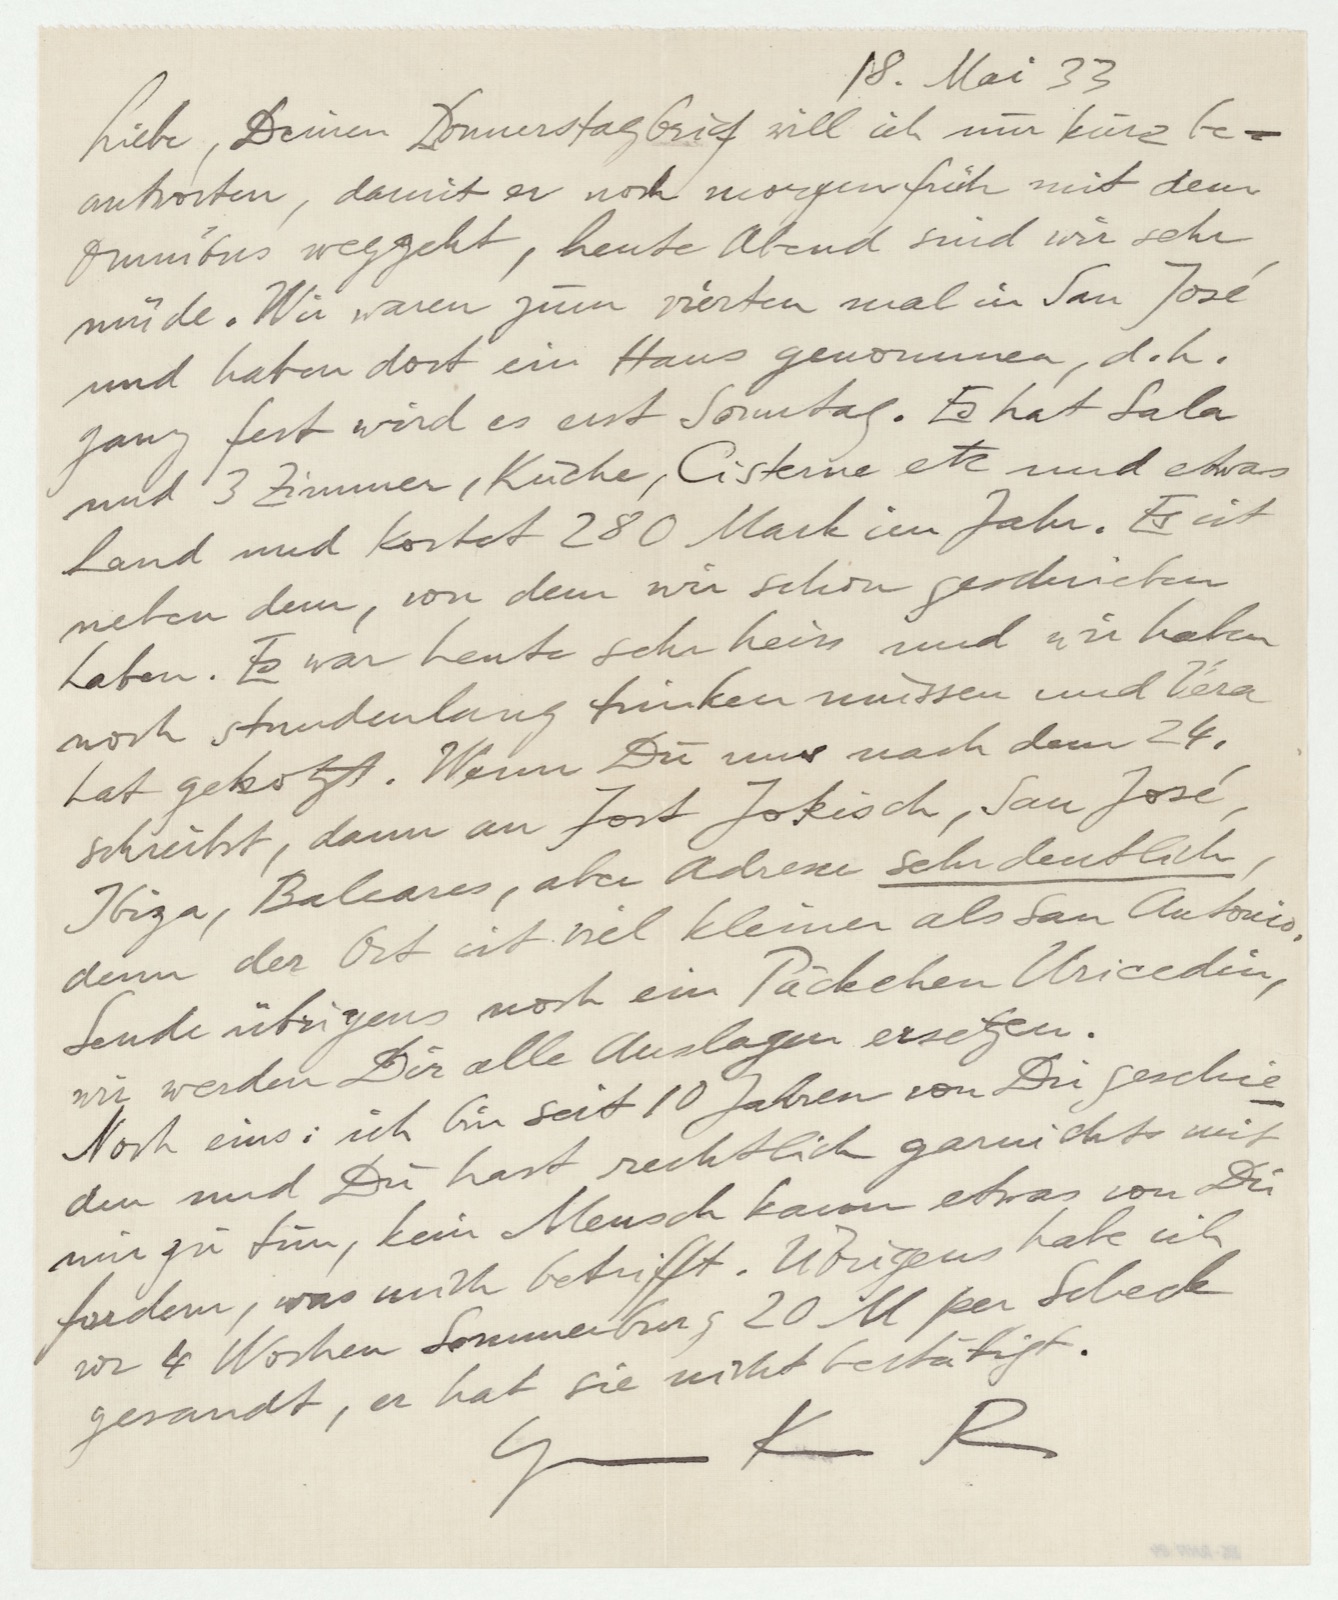 18. Mai 33
Liebe, Deinen Donnerstagbrief will ich nur kurz be-
antworten, damit er noch morgen früh mit dem
Omnibus weggeht, heute Abend sind wir sehr
müde. Wir waren zum vierten mal in San José
und haben dort ein Haus genommen, d.h.
ganz fest wird es erst Sonntag. Es hat Sala
und 3 Zimmer, Küche, Cisterne etc und etwas
Land und kostet 280 Mark im Jahr. Es ist
neben dem, von dem wir schon geschrieben
haben. Es war heute sehr heiss und wir haben
noch stundenlang trinken müssen und Vera
hat gekotzt. Wenn Du uns nach dem 24.
schreibst, dann an Jost Jokisch, San José,
Ibiza, Baleares, aber Adresse sehr deutlich,
denn der Ort ist viel kleiner als San Antonio.
Sende übrigens noch ein Päckchen Uricedin,
wir werden Dir alle Auslagen ersetzen.
Noch eins: ich bin seit 10 Jahren von Dir geschie-
den und Du hast rechtlich garnichts mit
mir zu tun, kein Mensch kann etwas von Dir
fordern, was mich betrifft. Übrigens habe ich
vor 4 Wochen Sommerburg 20 M per Scheck
gesandt, er hat sie nicht bestätigt.
G K R